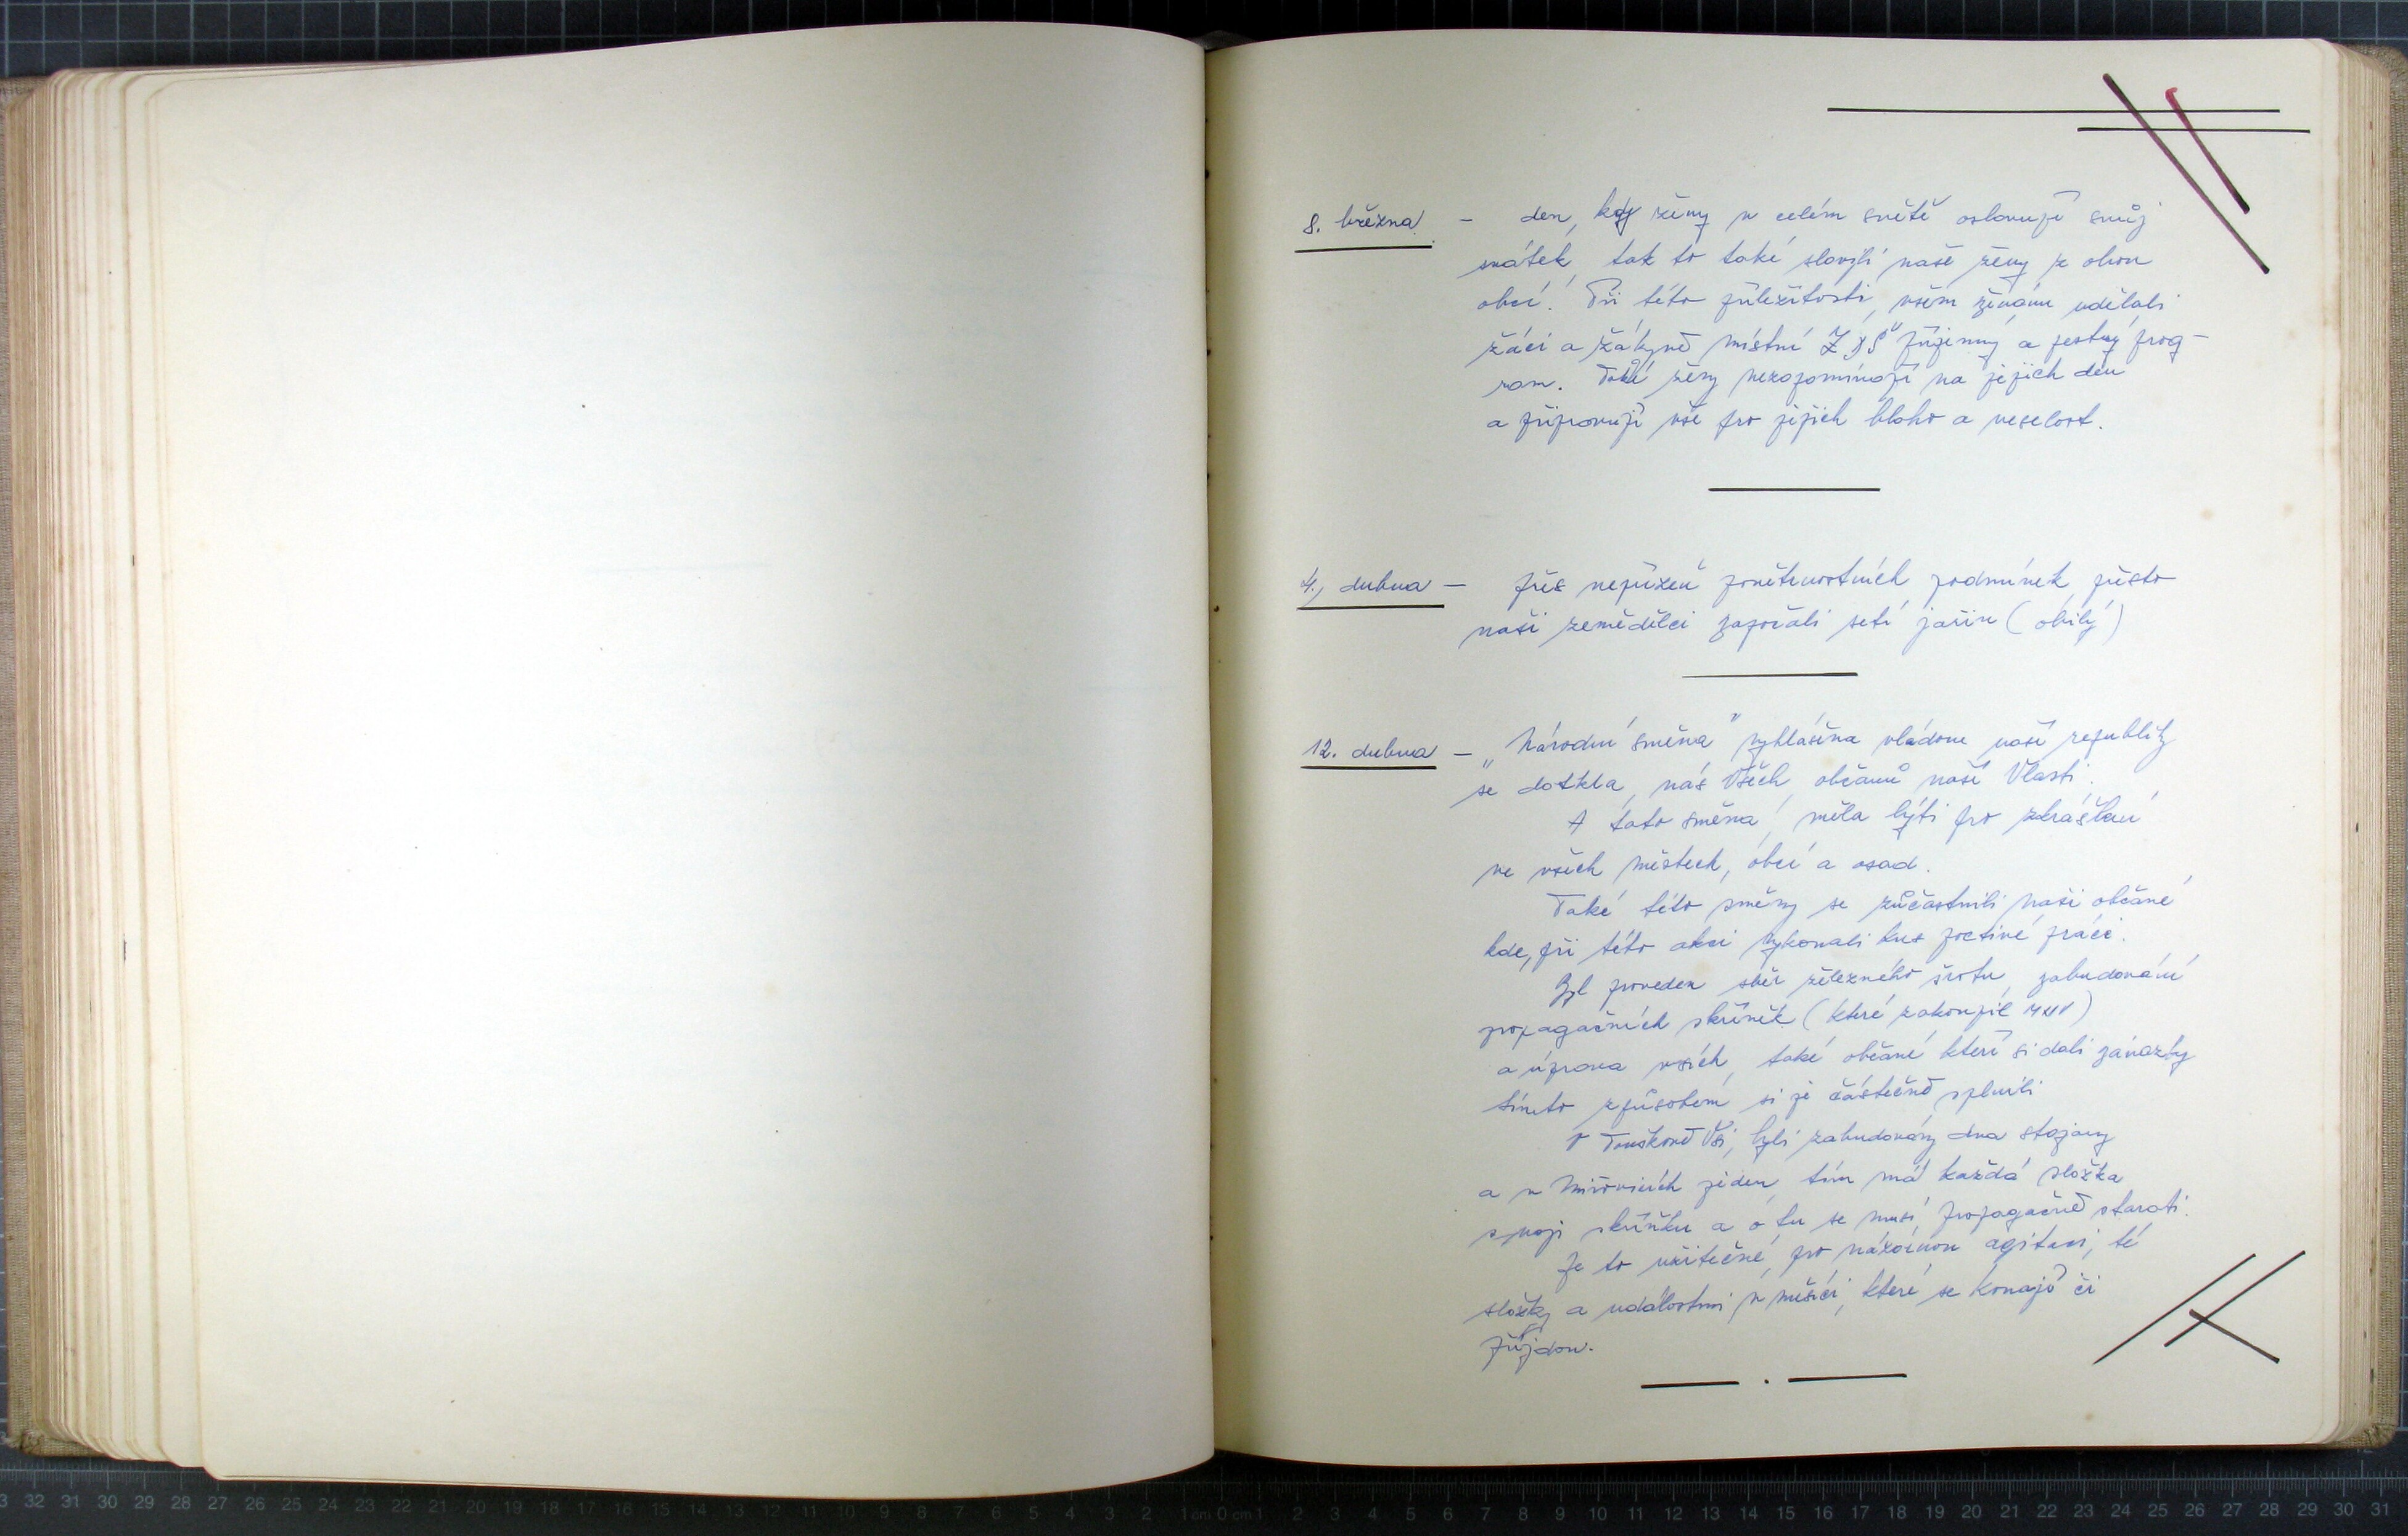 8. března - den, kdy ženy v celém světě oslavují svůj
svátek, tak to také slavili naše ženy z obou
obcí. Při této příležitosti, všem ženám udělali
žáci a žákyně místní ZDŠ příjemný a pestrý prog-
ram. Také ženy nezapomínají na jejich den
a připravují vše pro jejich blaho a veselost.
4., dubna - přes nepřízeň povětrnostních podmínek, přesto
naši zemědělci započali setí jařin (obilý)
12. dubna - „Národní směna" vyhlášena vládou naší republiky
se dotkla, nás Všech, občanů naší Vlasti.
A tato směna, měla býti pro zkrášlení
ve všech městech, obcí a osad.
Také této směny se zůčastnili naši občané
kde, při této akci vykonali kus poctivé práce.
Byl proveden sběr železného šrotu, zabudování
propagačních skříněk (které zakoupil MNV)
a úprava vsích, také občané kteří si dali závazky
tímto způsobem si je částečně splnili
V Touškově Vsi, byli zabudovány dva stojany
a v Mirovicích jeden, tím má každá složka
svoji skříňku a o tu se musí, propagačně starati.
Je to užitečné, pro názornou agitaci, té
složky a událostmi v měsíci, které se konají či
příjdou.
3 32 31 30 29 28 27 26 25 24 23 22 21 20 19 18 17 16 15 14 13 12 11 10 9 8 7 6 5 4 3 2 1 cm 0 cm 1 2 3 4 5 6 7 8 9 10 11 12 13 14 15 16 17 18 19 20 21 22 23 24 25 26 27 28 29 30 31